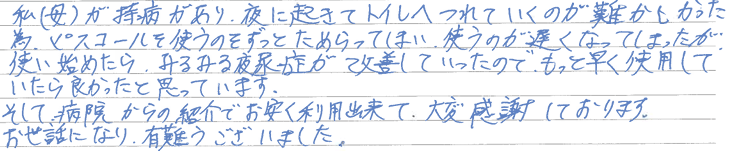 私(母)が持病があり、夜に起きてトイレへつれていくのが難かしかった
為、ピスコールを使うのをずっとためらってしまい、使うのが遅くなってしまったが、
使い始めたら、みるみる夜尿症が改善していったので、もっと早く使用して
いたら良かったと思っています。
そして、病院からの紹介でお安く利用出来て、大変感謝しております。
お世話になり、有難うございました。